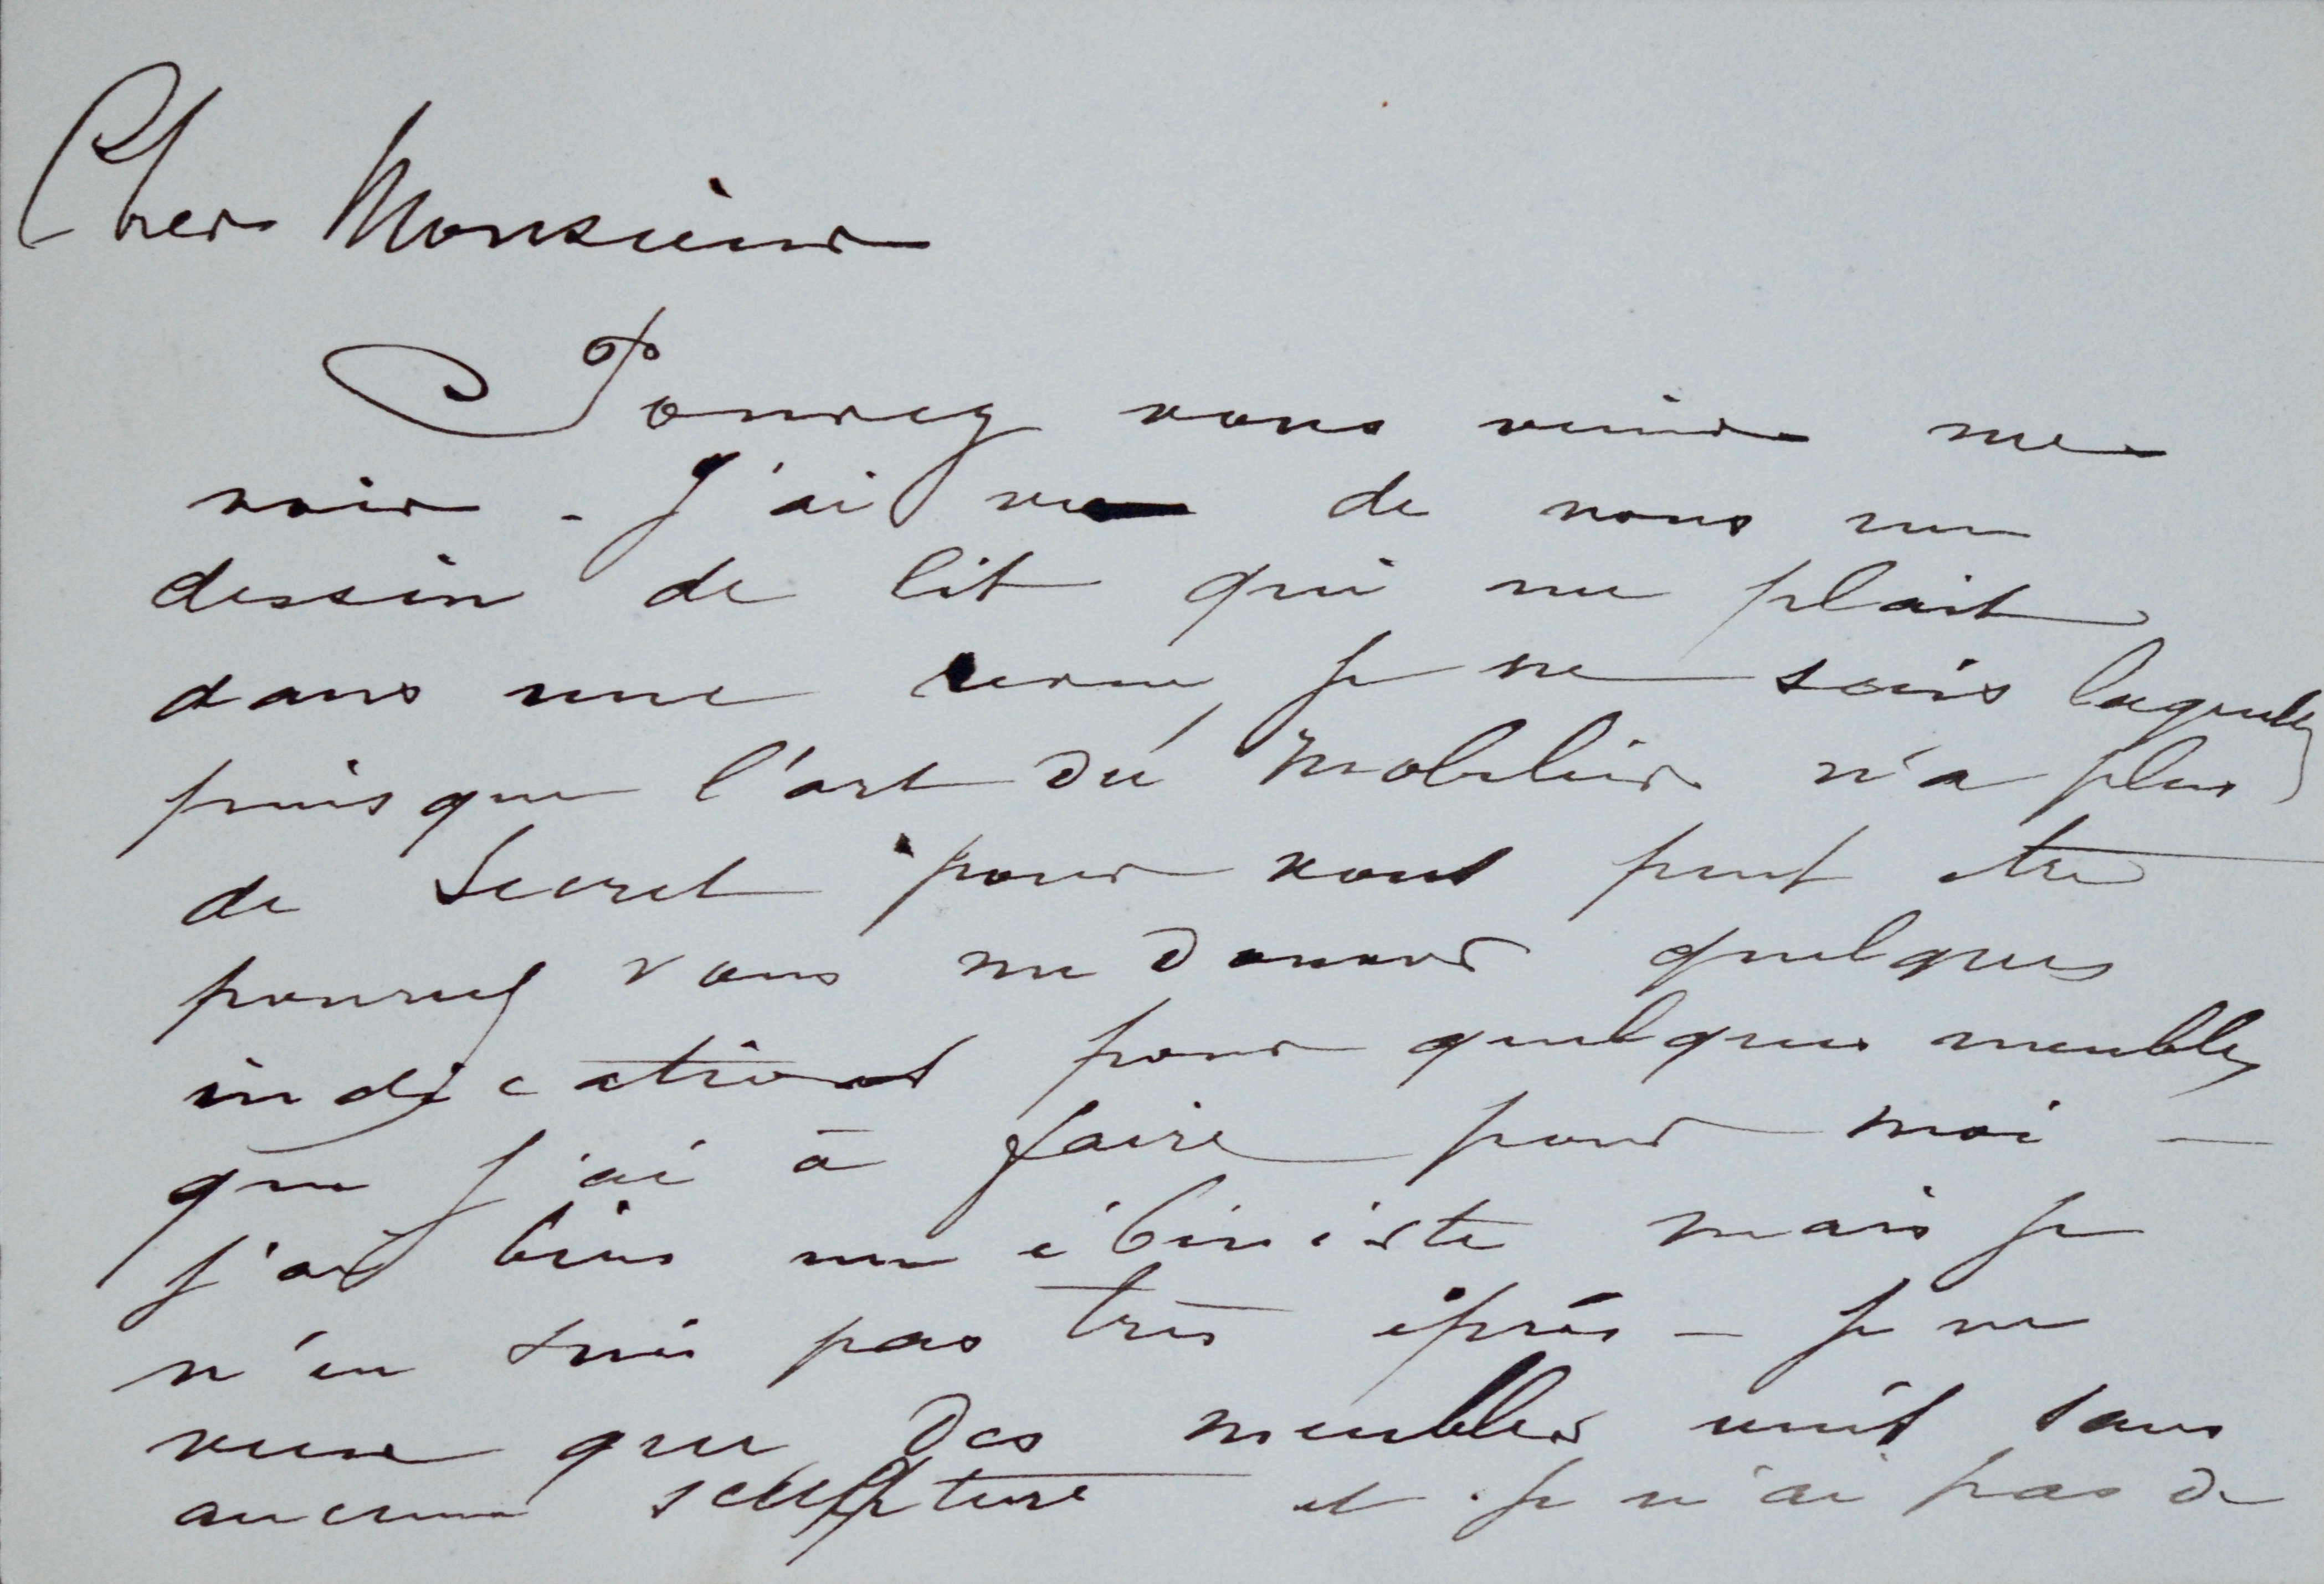 Cher Monsieur
Pouvez vous venir me
voir - J'ai vu de vous un
dessin de lit qui me plait
dans une revue, je ne sais laquelle,
puisque l'art du mobilier n'a plus
de secret pour vous peut etre
pourrez vous me donner quelques
indications pour quelques meubles
que j'ai à faire pour moi -
j'ai bien un ébéniste mais je
n'en suis pas très éprise - je ne
veux que des meubles unis sans
aucune sculpture et je n'ai pas de